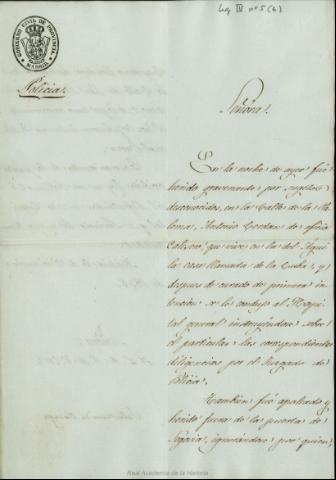 Leg IX nº 5 (6)
GOBIERNO CIVIL DE PROVINCIA
MADRID
Policia.
Señora.
En la noche de ayer fué
herido gravemente por sugetos
desconocidos, en la Calle de la
Paloma, Antonio de oficio
que vive en la del Aguila
casa llamada de la Cuba, y
despues de curado de primera in
tencion se le condujo al Hospi
tal general instruyendose sobre
el particular las correspondientes
diligencias por el Juzgado de
Policia.
Tambien fué apaleado y
herido fuera de la puerta de
Segovia, ignorandose por quien,
Real Academia de la Historia